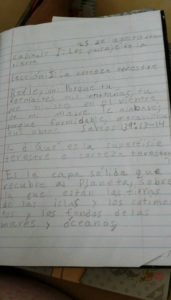 25 de agosto
Capitulo I: Los paisajes de la
tierra
Lección: 1 La corteza terrestre
Reflexión: Porque tu
formaste mis entrañas, tu
me hiciste en el vientre
de mi madre Te alabaré;
porque formidables, maravillosas
son tus obras Salmos 139:13-14
¿Qué es la superficie
terrestre o corteza terrestre
Es la capa solida que
recubre al Planeta, sobre
la que estan las tierras
las islas y los
y los fondos de los
mares y oceanos